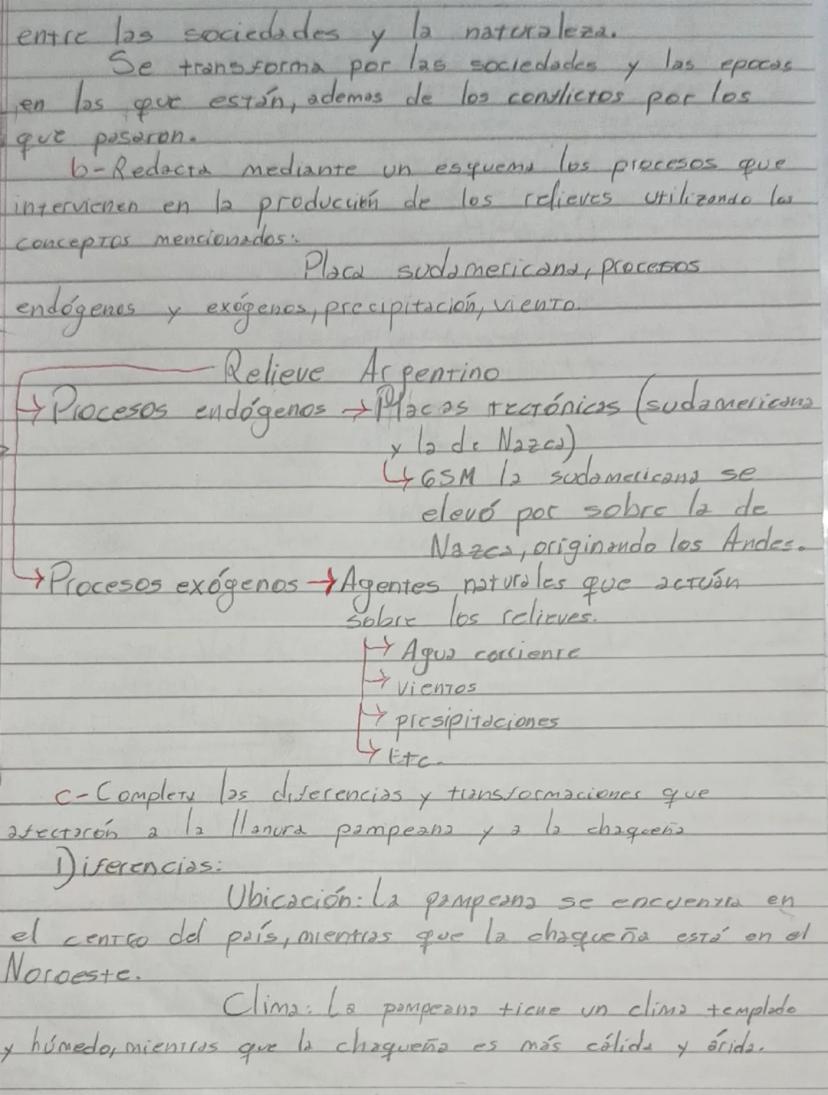 entre las sociedades y la naturaleza.
Se transforma por las sociedades y las epocas
en las que están, ademas de los conflictos por los
que pasaron.
b-Redacta mediante un esquema los procesos que
intervienen en la producción de los relieves utilizando los
conceptos mencionados:
Placa sudamericana, procesos
endógenos y exógenos, precipitación, viento.
Relieve Argentino
→ Procesos endógenos → Placas tectónicas (sudamericana
y la de Nazca)
↳ 65M la sudamericana se
elevó por sobre la de
Nazca, originando los Andes.
→ Procesos exógenos → Agentes naturales que actúan
sobre los relieves.
→ Agua corriente
→ vientos
→ presipitaciones
↳ Etc.
c-Completa las diferencias y transformaciones que
afectarón a la llanura pampeana y a la chaqueña
Diferencias:
Ubicación: La pampeana se encuentra en
el centro del país, mientras que la chaqueña está en el
Noroeste.
Clima: La pampeana tiene un clima templado
y húmedo, mientras que la chaqueña es más cálida y árida.